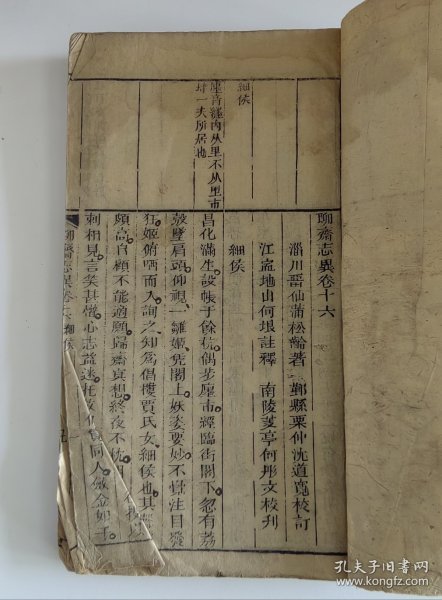 細侯
廛音纏内从里不从里市
一夫所居也
聊齋志異卷十六
淄川留仙蒲松齡著 鄞縣栗仲沈道寬校訂
江寧地山何垠註釋 南陵菱亭何彤文校刊
細侯
昌化滿生設帳于餘杭偶步廛市經臨街閣下忽有荔
殼墜肩頭仰視一雛姬凭閣上妖姿要妙不覺注目發
狂姬俯哂而入詢之知爲倡樓賈氏女細侯也其
頗高自顧不能適願歸齋冥想終夜不枕
刺相見言笑甚懽心志益迷托故假貸同人斂金如干
聊齋志異卷十六 細侯
孔夫子旧书网
www.kongfz.com